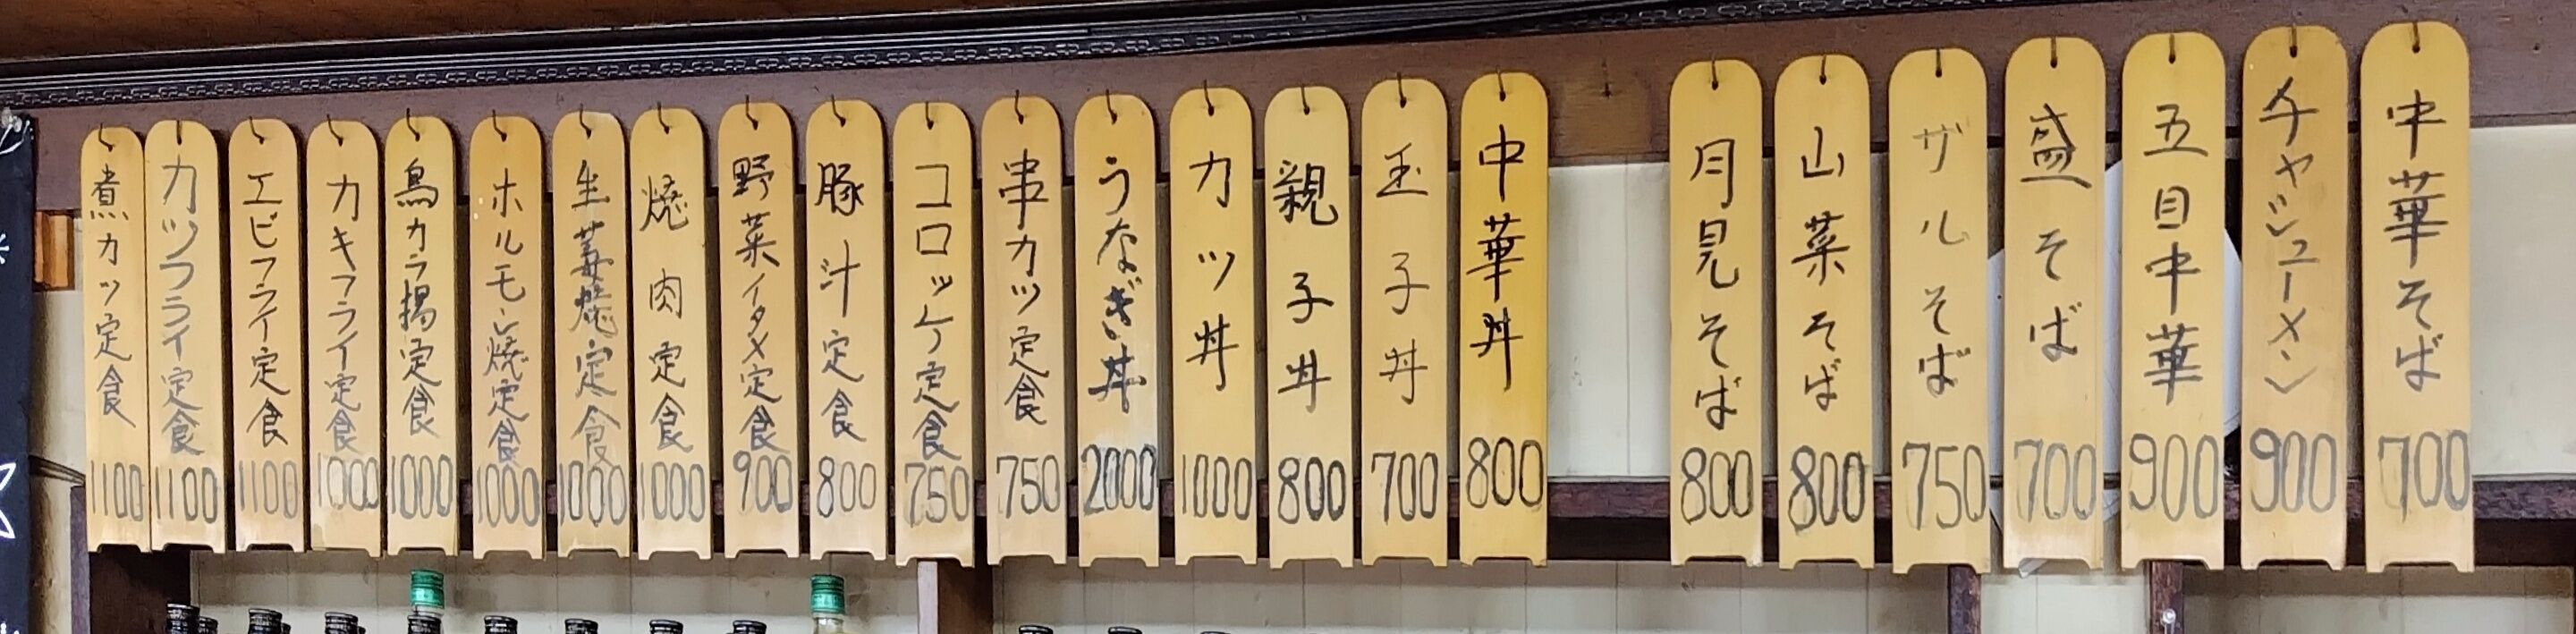 中華そば 700
チャシューメン 900
五目中華 900
盛そば 700
ザルそば 750
山菜そば 800
月見そば 800
中華丼 800
玉子丼 700
親子丼 800
カツ丼 1000
うなぎ丼 2000
串カツ定食 750
コロッケ定食 750
豚汁定食 800
野菜イタメ定食 900
焼肉定食 1000
生姜焼定食 1000
ホルモン焼定食 1000
鳥カラ揚定食 1000
カキフライ定食 1000
エビフライ定食 1100
カツフライ定食 1100
煮カツ定食 1100